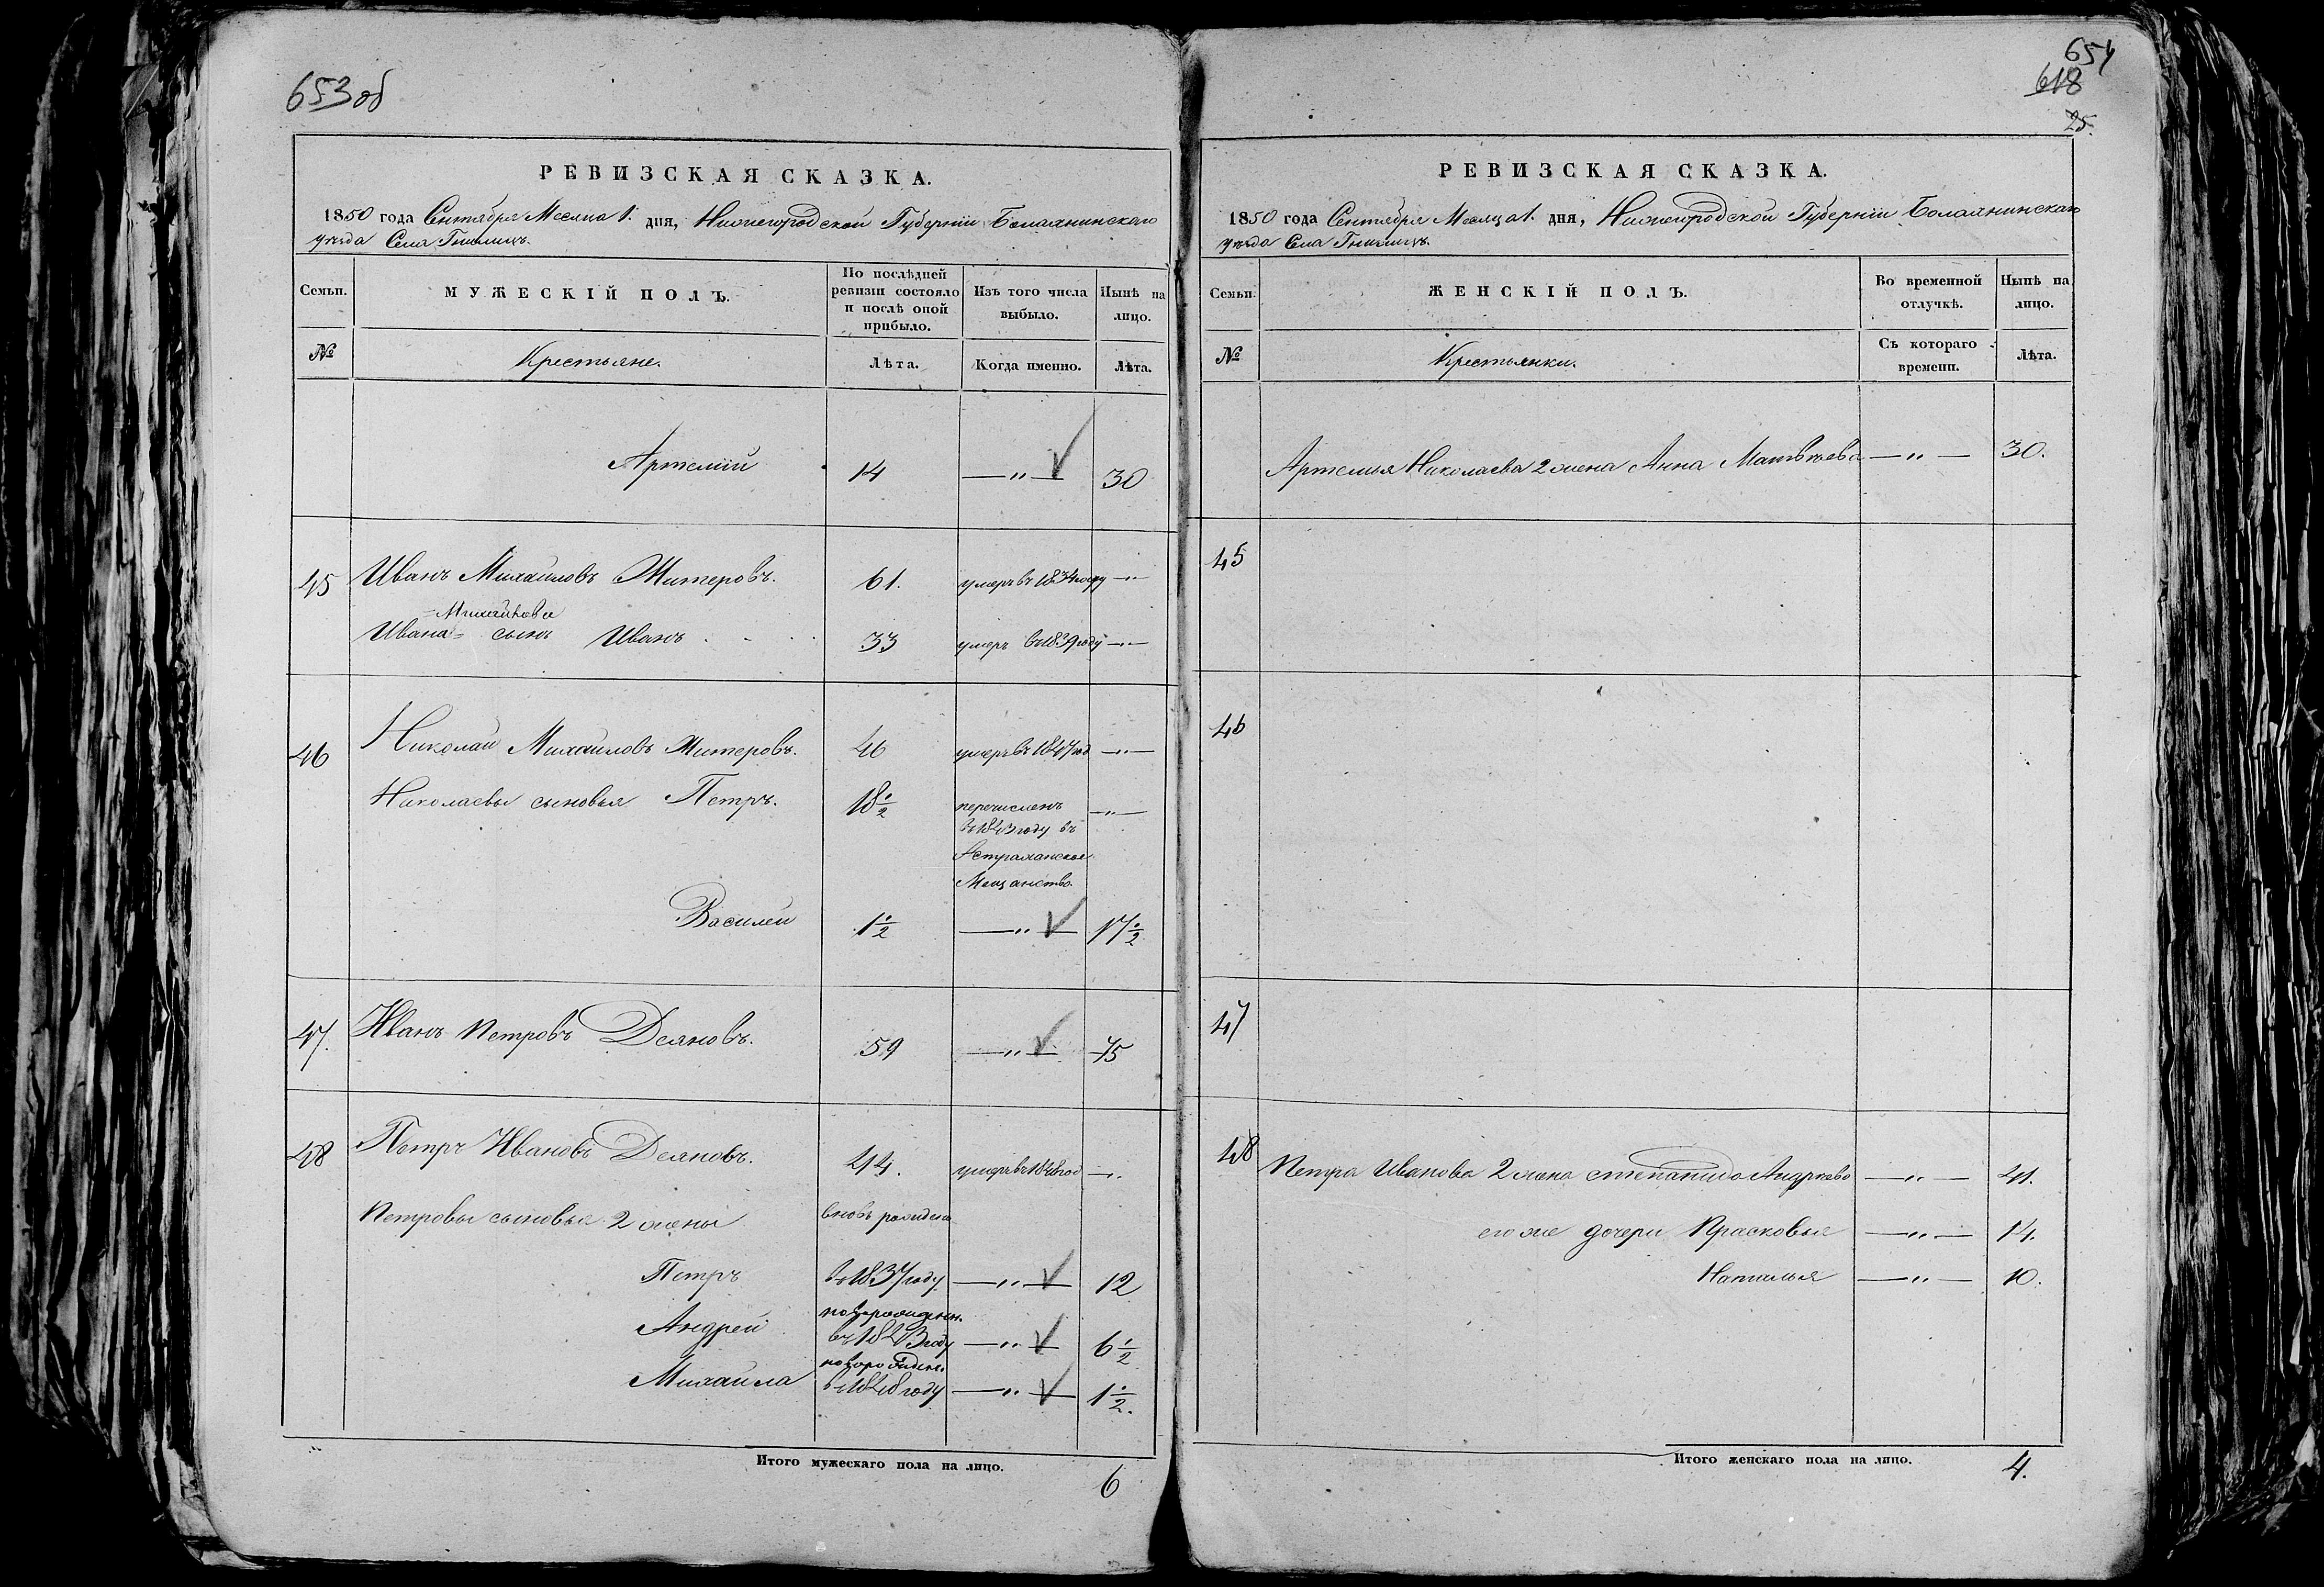 653 об
РЕВИЗСКАЯ СКАЗКА.
1850 года Сентября Месяца 1. дня, Нижегородской Губерніи Балахнинскаго
уезда Села Гнилицъ.
Семьи. МУЖЕСКІЙ ПОЛЪ. По послѣдней ревизіи состояло и послѣ оной прибыло. Изъ того числа выбыло. Нынѣ на лицо.
№ Крестьяне. Лѣта. Когда именно. Лѣта.
Артемій 14 —„— 30
45 Иванъ Михайловъ Житеровъ. 61. умеръ въ 1834 году —„—
Михайлова
Ивана сынъ Иванъ 33 умеръ въ 1839 году —„—
46 Николай Михайловъ Житеровъ. 46 умеръ въ 1847 год —„—
Николаевы сыновья Петръ. 18½ перечисленъ —„—
въ 1843 году въ
Астраханское
Мещанство.
Василей 1½ —„— 17½
47. Иванъ Петровъ Деяновъ. 59 —„— 75
48 Петръ Ивановъ Деяновъ. 44. умеръ въ 1848 год —„
Петровы сыновья 2 жены вновь рожденн
Петръ въ 1837 году —„— 12
новорожденн.
Андрей въ 1843 году —„— 6½
новорожден.
Михайла въ 1848 году —„— 1½.
Итого мужескаго пола на лицо. 6
654
618
25.
РЕВИЗСКАЯ СКАЗКА.
1850 года Сентября Месяца 1. дня, Нижегородской Губерніи Балахнинскаго
уезда Села Гнилицъ.
Семьи. ЖЕНСКІЙ ПОЛЪ. Во временной отлучкѣ. Нынѣ на лицо.
№ Крестьянки. Съ котораго времени. Лѣта.
Артемья Николаева 2 жена Анна Матвѣева —„— 30.
45
46
47
48 Петра Иванова 2 жена Степанида Андреева —„— 41.
его же дочери Прасковья —„— 14.
Наталья —„— 10.
Итого женскаго пола на лицо. 4.